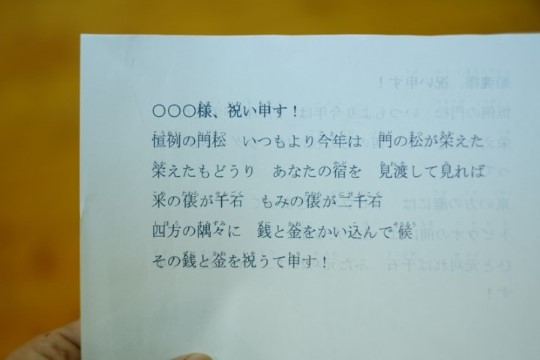 〇〇〇様、祝い申す！
恒例の門松　いつもより今年は　門の松が栄えた
栄えたもどうり　あなたの宿を　見渡して見れば
米の俵が千石　もみの俵が二千石
四方の隅々に　銭と釜をかい込んで候
その銭と釜を祝うて申す！